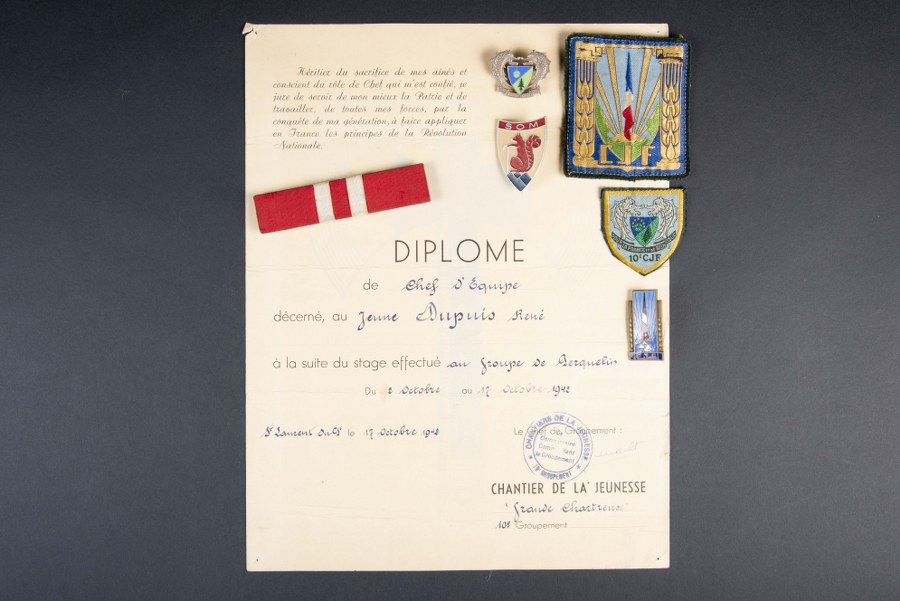 Héritier du sacrifice de mes aînés et
conscient du rôle de Chef qui m'est confié, je
jure de servir de mon mieux la Patrie et de
travailler, de toutes mes forces, par la
conquête de ma génération, à faire appliquer
en France les principes de la Révolution
Nationale.
SOM
CJF
10e CJF
DIPLOME
de Chef d'Equipe
décerné, au Jeune Dupuis René
à la suite du stage effectué au Groupe de Berquetin
Du 2 Octobre au 17 Octobre 1942
St Laurent du Pt le 17 Octobre 1942
Le Chef de Groupement :
CHANTIERS DE LA JEUNESSE
Le Commissaire
Commandant
le Groupement
10e GROUPEMENT
CHANTIER DE LA JEUNESSE
"Grande Chartreuse"
101 Groupement